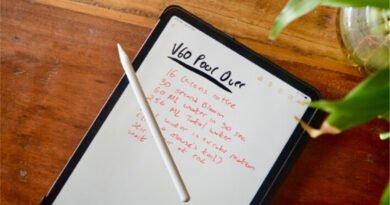 V60 Pour Over
16 Grams coffee
30 second Bloom
60 ML water in 30 sec
256 ML Total water
water in circular motion
a mouse's tail)